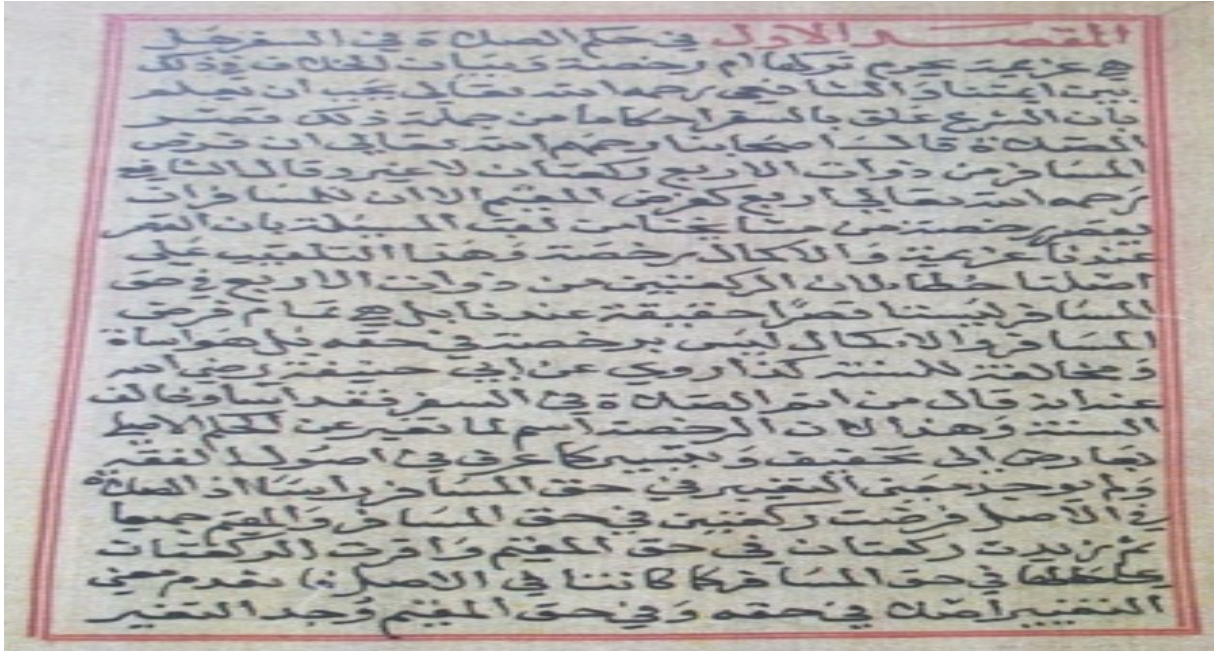 المقصد الاول في حكم الصلاة في السفر هل
هي عزيمة يحرم تركها ام رخصة وبيان الخلاف في ذلك
بين ايمتنا والشافعي رحمه الله تعالى يجب ان تعلم
بان الشرع علق بالسفر احكاما من جملة ذلك قصر
الصلاة قال اصحابنا رحمهم الله تعالى ان فرض
المسافر من ذوات الاربع ركعتان لا غير وقال الشافعي
رحمه الله تعالى اربع كفرض المقيم الا ان للمسافر ان
يقصر رخصة من مشايخنا من لقب المسيلة بان القصر
عندنا عزيمة والاكمال رخصة وهذا التلقيب على
اصلنا خطأ لان الركعتين من ذوات الاربع في حق
المسافر ليستا قصرا حقيقة عندنا بل هي تمام فرض
المسافر والاكمال ليس برخصة في حقه بل هو اساة
ومخالفة للسنة كذا روي عن ابي حنيفة رضي الله
عنه انه قال من اتم الصلاة في السفر فقد اسا وخالف
السنة وهذا لان الرخصة اسم لما تغير عن الحكم الاصلي
بعارض الى تخفيف وتيسير كما عرف في اصول الفقه
ولم يوجد معنى التغيير في حق المسافر راسا اذ الصلاة
في الاصل فرضت ركعتين في حق المسافر والمقيم جميعا
ثم زيدت ركعتان في حق المقيم واقرت الركعتان
على حالهما في حق المسافر كما كانتا في الاصل معنى
التغيير اصلا في حقه وفي حق المقيم وجد التغير